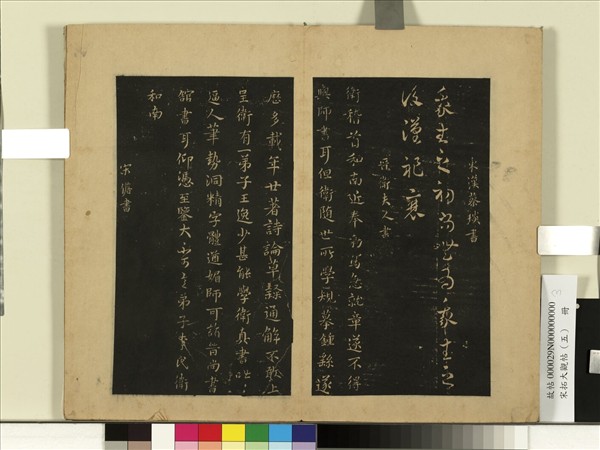 東漢蔡琰書
我生之初尚無為我生之
後漢祚衰
晉衛夫人書
衛稽首和南近奉勑寫急就章遂不得
與師書耳但衛隨世所學規摹鍾繇遂
歷多載年廿著詩論草隸通解不敢上
呈衛有一弟子王逸少甚能學衛真書咄咄
逼人筆勢洞精字體遒媚師可詣晉尚書
館書耳仰憑至鑒大不可言弟子李氏衛
和南
宋儋書
故帖000029N000000000
宋拓大觀帖（五） 冊